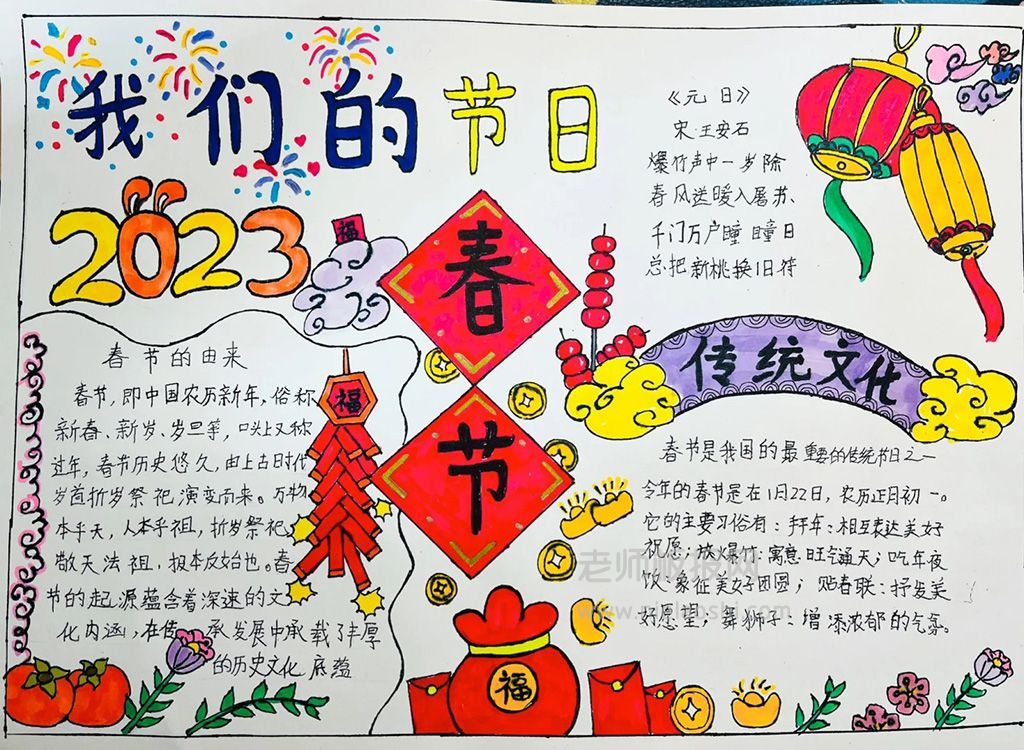 我们的节日
2023
福
春节
《元日》
宋·王安石
爆竹声中一岁除
春风送暖入屠苏、
千门万户瞳瞳日
总把新桃换旧符
春节的由来
春节,即中国农历新年,俗称
新春、新岁、岁旦等,口头上又称
过年,春节历史悠久,由上古时代
岁首祈岁祭祀演变而来。万物
本乎天,人本乎祖,祈岁祭祀、
敬天法祖,报本反始也。春
节的起源蕴含着深邃的文
化内涵,在传承发展中承载了丰厚
的历史文化底蕴
福
传统文化
春节是我国的最重要的传统节日之一
今年的春节是在1月22日,农历正月初一。
它的主要习俗有:拜年:相互表达美好
祝愿;放爆竹:寓意旺气通天;吃年夜
饭:象征美好团圆;贴春联:抒发美
好愿望;舞狮子:增添浓郁的气氛。
福
老师板报网